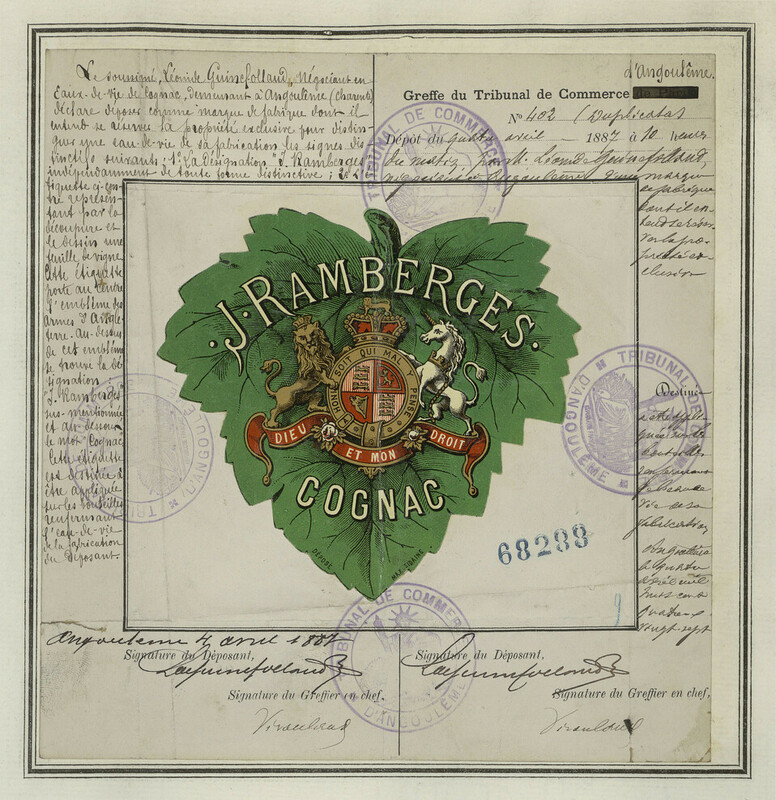 Le soussigné, Léonide Guinefolland, Négociant en
Eaux-de-vie de Cognac, demeurant à Angoulême (Charente)
déclare déposer comme marque de fabrique dont il
entend se réserver la propriété exclusive pour distin-
guer une eau-de-vie de sa fabrication les signes dis-
tinctifs suivants: 1° La désignation "J. Ramberges
indépendamment de toute forme distinctive; 2° L'é-
tiquette ci-con-
tre représen-
tant par la
découpure et
le dessin une
feuille de vigne.
Cette étiquette
porte au centre
l'emblème des
armes d'Angle-
terre. Au-dessus
de cet emblème
se trouve la dé-
signation
J. Ramberges
sus-mentionnée
et au dessous
le mot Cognac
Cette étiquette
est destinée à
être appliquée
sur les bouteilles
renfermant
l'eau-de-vie
de la fabrication
du Déposant.
d'Angoulême.
Greffe du Tribunal de Commerce
N° 402 (Duplicata)
Dépôt du quatre avril 1887 à 10 heures
du matin, par M. Léonide Guinefolland,
négociant à Angoulême d'une marque
de fabrique
dont il en-
tend se réser-
ver la pro-
priété ex-
clusive
Destinée
TRIBUNAL DE COMMERCE
D'ANGOULÊME
TRIBUNAL
D'ANGOULÊME
·J. RAMBERGES·
HONI SOIT QUI MAL Y PENSE
DIEU ET MON DROIT
COGNAC
DÉPOSÉ
68288
9
Angoulême
le quatre
avril mil
huit cent
quatre-
vingt-sept
Angoulême 4 avril 1887
Signature du Déposant,
Signature du Déposant,
LGuinefolland
LGuinefolland
Signature du Greffier en chef,
Signature du Greffier en chef,
TRIBUNAL DE COMMERCE
D'ANGOULÊME